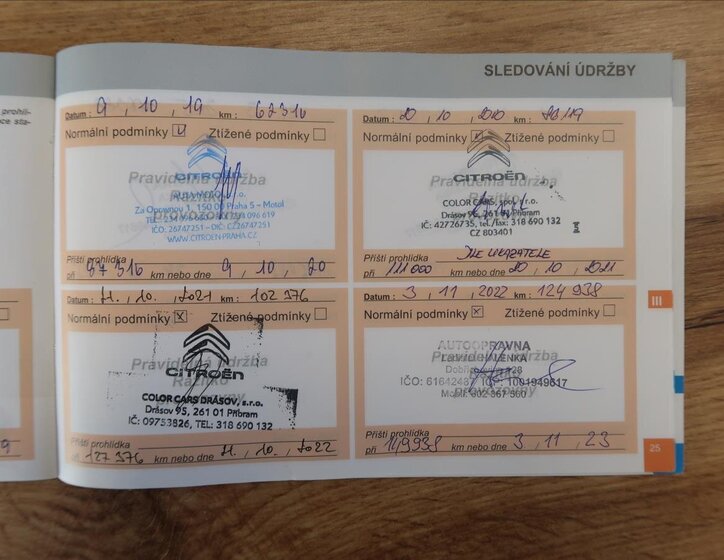 SLEDOVÁNÍ ÚDRŽBY
Datum : 9 , 10 , 19 km : 62316
Normální podmínky Ztížené podmínky
CITROËN
Pravidelná údržba
Razítko
provozovny
Za Opravnou 1, 150 00 Praha 5 - Motol
IČO: 26747251 - DIČ: CZ26747251
WWW.CITROEN-PRAHA.CZ
Příští prohlídka
při 87316 km nebo dne 9 , 10 , 20
Datum : 20 , 10 , 2020 km :
Normální podmínky Ztížené podmínky
CITROËN
Pravidelná údržba
Razítko
provozovny
COLOR CARS
Drásov 95, 261 01 Příbram
IČ: 42726735, tel./fax: 318 690 132
CZ 803401
Příští prohlídka DLE UKAZATELE
při 111000 km nebo dne 20 , 10 , 2021
Datum : 21. , 10. , 2021 km : 102 376
Normální podmínky X Ztížené podmínky
CITROËN
Pravidelná údržba
Razítko
provozovny
COLOR CARS DRÁSOV, s.r.o.
Drásov 95, 261 01 Příbram
IČ: 09753826, TEL: 318 690 132
Příští prohlídka
při 127 376 km nebo dne 21. , 10. , 2022
Datum : 3 , 11 , 2022 km : 124 938
Normální podmínky X Ztížené podmínky
AUTOOPRAVNA
Pravidelná údržba
Razítko
provozovny
Příští prohlídka
při 149938 km nebo dne 3 , 11 , 23
III
25